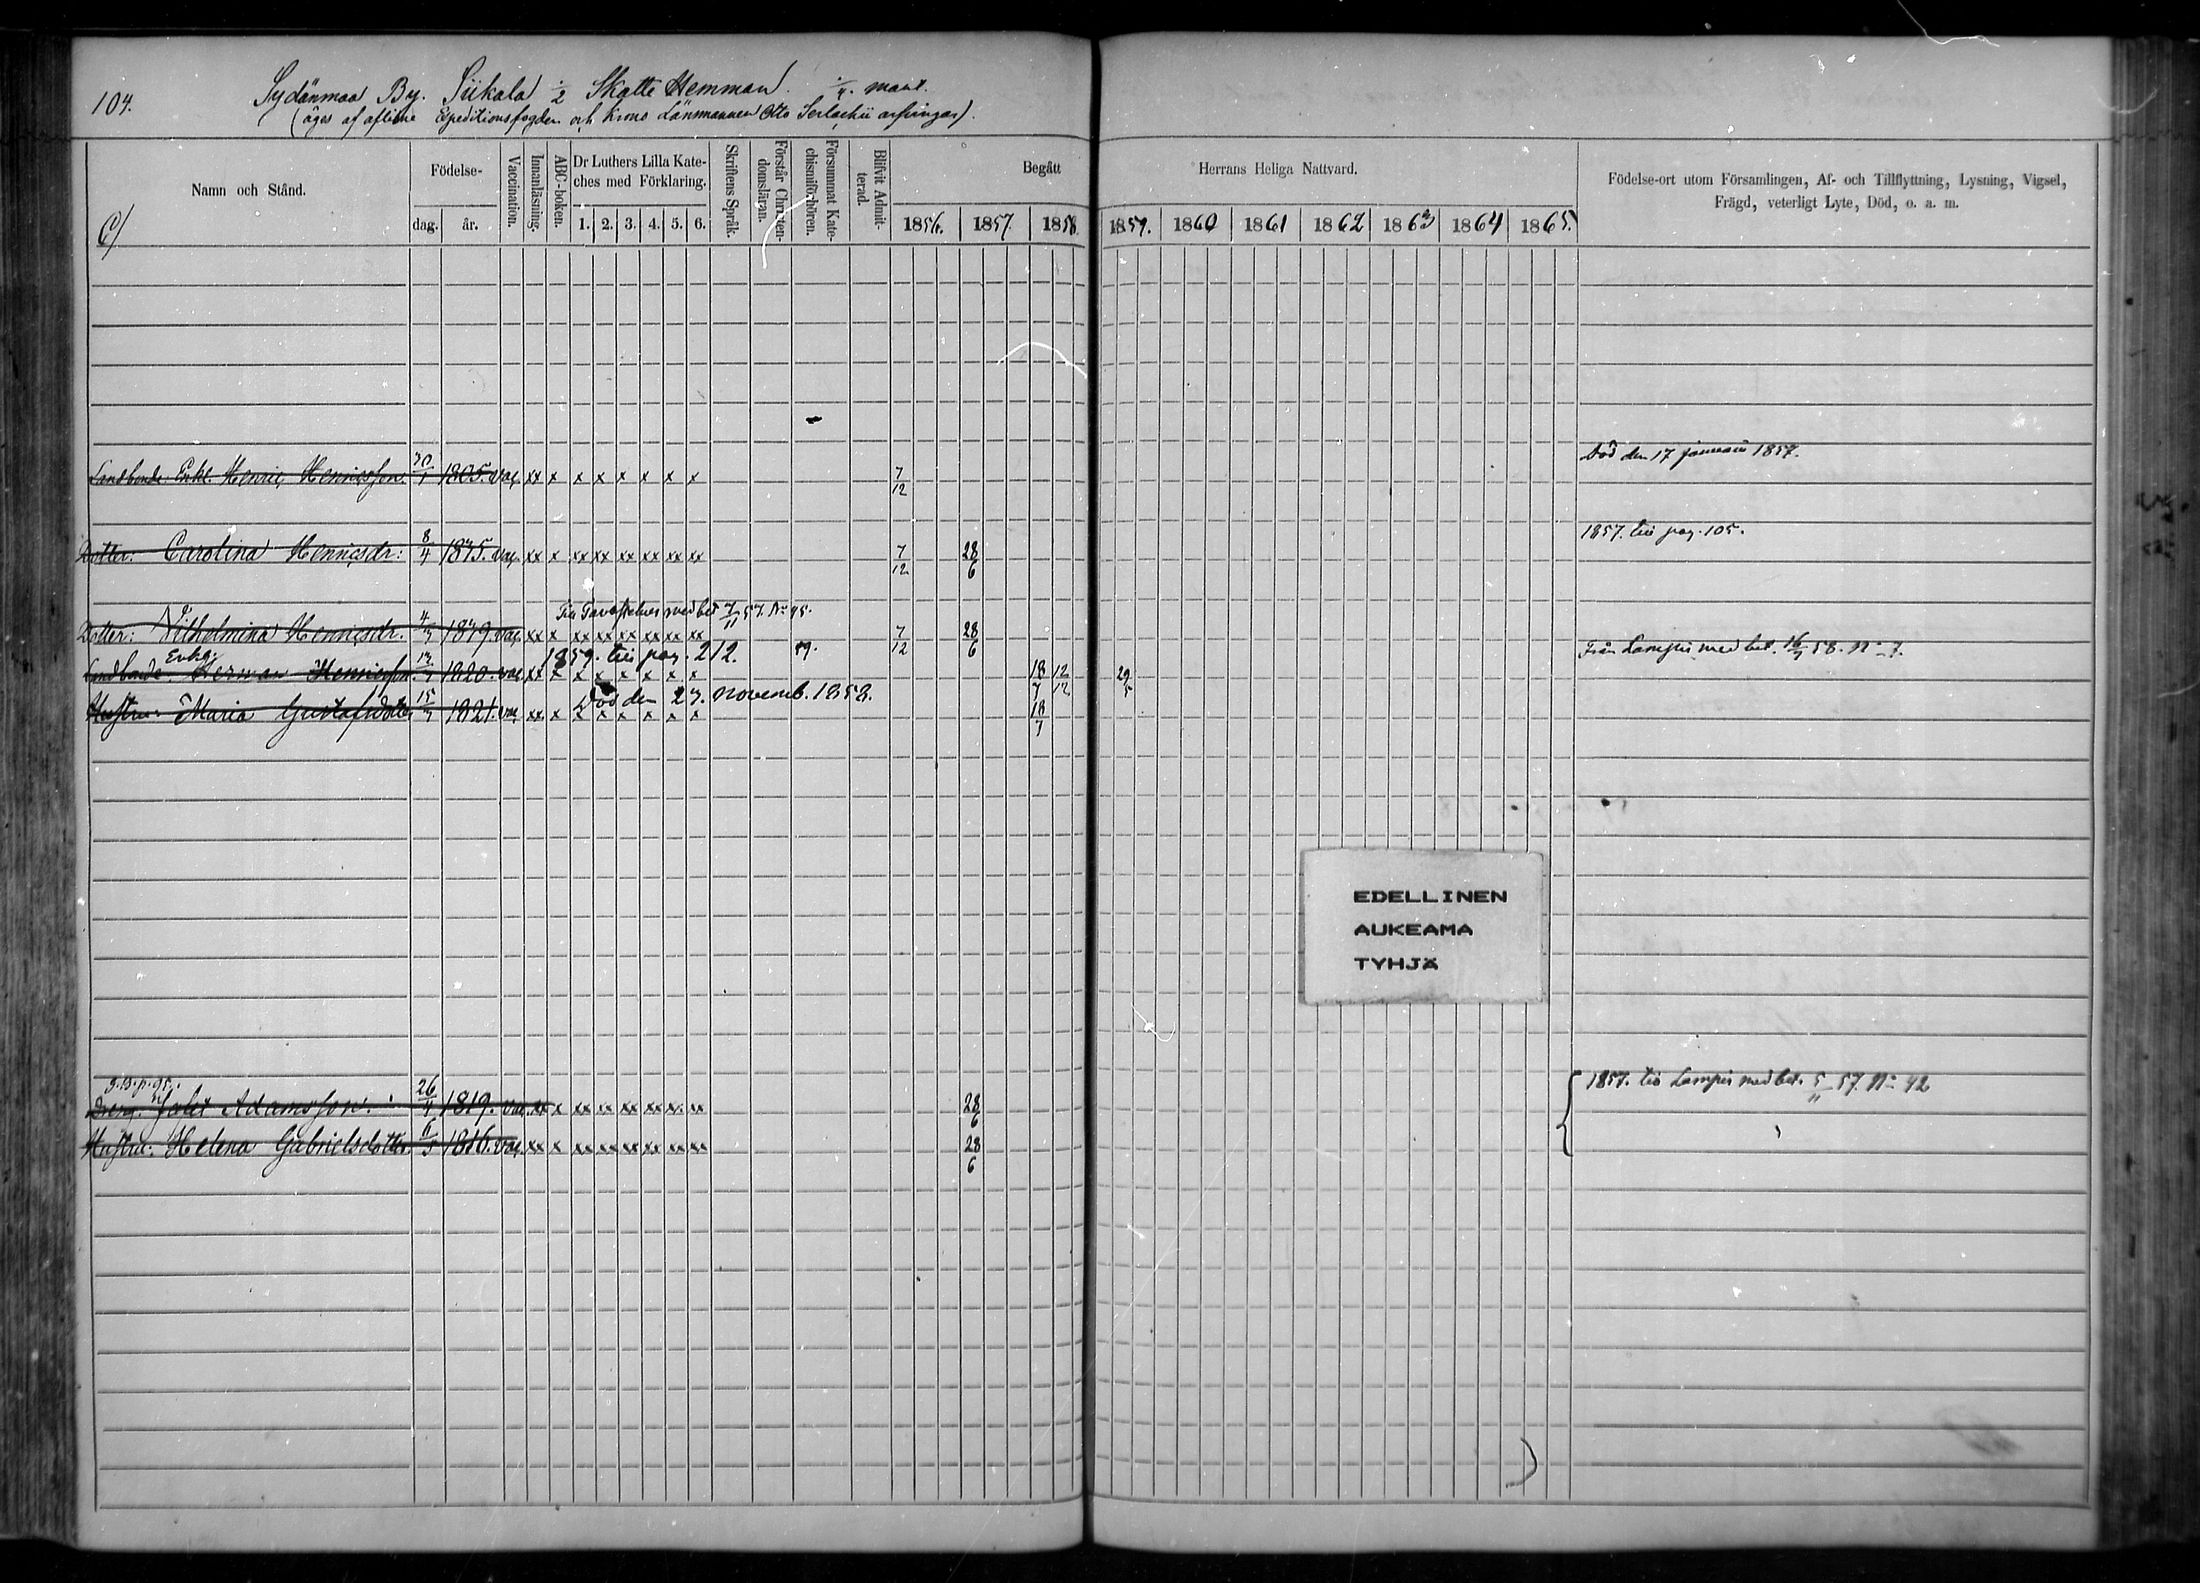 104. Sydänmaa By. Siikala 1/2 Skatte Hemman. 1/4. mant.
(äges af aflidne Expeditionsfogden och Krono Länsmannen Otto Serlachii arfvingar).
Namn och Stånd. Födelse- dag. år. Vaccination. Innanläsning. ABC-boken. Dr Luthers Lilla Kateches med Förklaring. 1. 2. 3. 4. 5. 6. Skriftens Språk. Förstår Christendomsläran. Försummat Katechismiförhören. Blifvit Admitterad. Begått Herrans Heliga Nattvard. 1856. 1857. 1858. 1859. 1860 1861 1862 1863 1864 1865. Födelse-ort utom Församlingen, Af- och Tillflyttning, Lysning, Vigsel, Frägd, veterligt Lyte, Död, o. a. m.
C/
Död den 17 januarii 1857.
Landbonde Enkl. Henric Henricsson. 30/1 1805. vac. xx x x x x x x x 7/12
1857. till pag. 105.
Dotter: Carolina Henricsdr: 8/4 1835. vac. xx x xx xx xx xx xx xx 7/12 28/6
Till med bet 7/11 57. No 45.
Dotter: Vilhelmina Henricsdr. 4/4 1839. vac. xx x xx xx xx xx xx xx 7/12 28/6
1859. till pag. 212. 59. Från Lampis med bet. 16/7 58. No 7.
Enkl.
Landbonde Herman Henricsson 1820. vac. xx x x x x x x x 18/7 12/12 29/5
Död den 27. novemb. 1858.
Hustru: Maria Gustafsdotter 1821. vac. xx x x x x x x x 18/7
EDELLINEN
AUKEAMA
TYHJÄ
g.B.p.95.
1857. till Lampis med bet. 5/11 57. No 42
Dreng: Adamsson. 26/4 1819. vac. xx x xx xx xx xx xx xx 28/6
Hustru: Helena Gabrielsdotter. 6/5 1816. vac. xx x xx xx xx xx xx xx 28/6